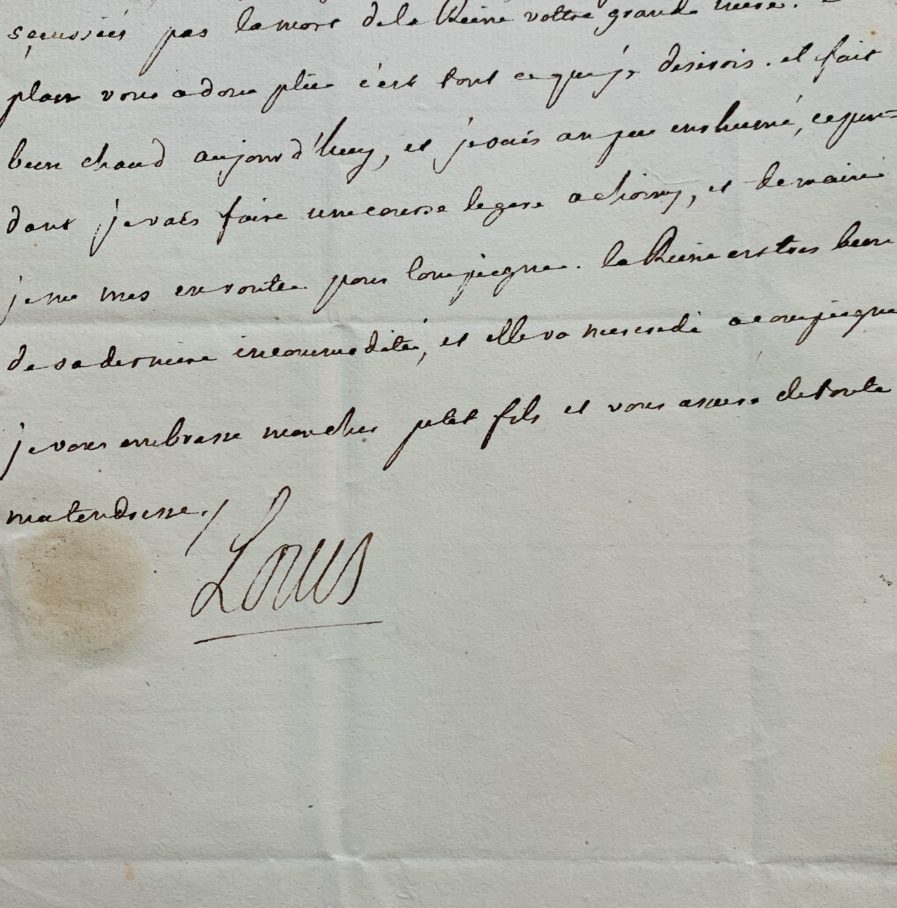 sçeussiés pas la mort de la Reine vostre grande mere.
plan vous a donc plûe c'est tout ce que je desirois. il fait
bien chaud aujourd'huy, et je suis un peu enrhumé, cepen=
dant je vais faire une course legere a choisy, et demain
je me mes en route pour Compiegne. la Reine est tres bien
de sa derniere incommodité, et elle va mercredi a compiegne
je vous embrasse mon cher petit fils et vous assure de toute
ma tendresse./.
Louis